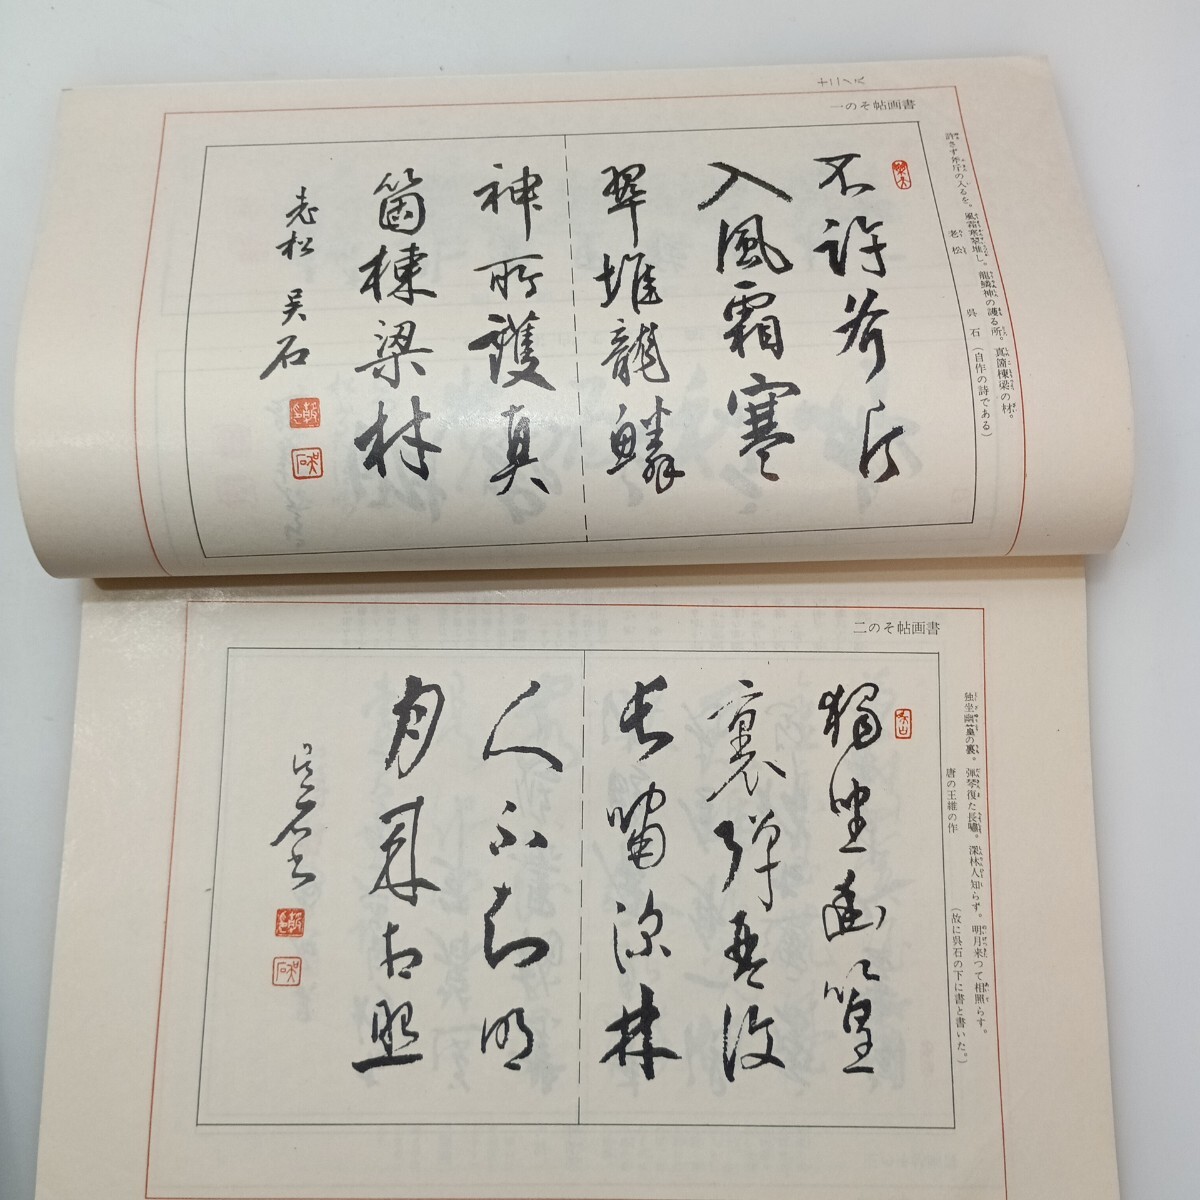 書画帖その一
不許斧斤
入風霜寒
翠堆龍鱗
神所護真
箇棟梁材
老松 呉石
許さず斧斤の入るを。風霜寒翠堆し。龍鱗神の護る所。真箇棟梁の材。
老松 呉石(自作の詩である)
書画帖その二
獨坐幽篁
裏弾琴復
長嘯深林
人不知明
月来相照
呉石書
独坐幽篁の裏。弾琴復た長嘯。深林人知らず。明月来つて相照らす。
唐の王維の作 (故に呉石の下に書と書いた。)